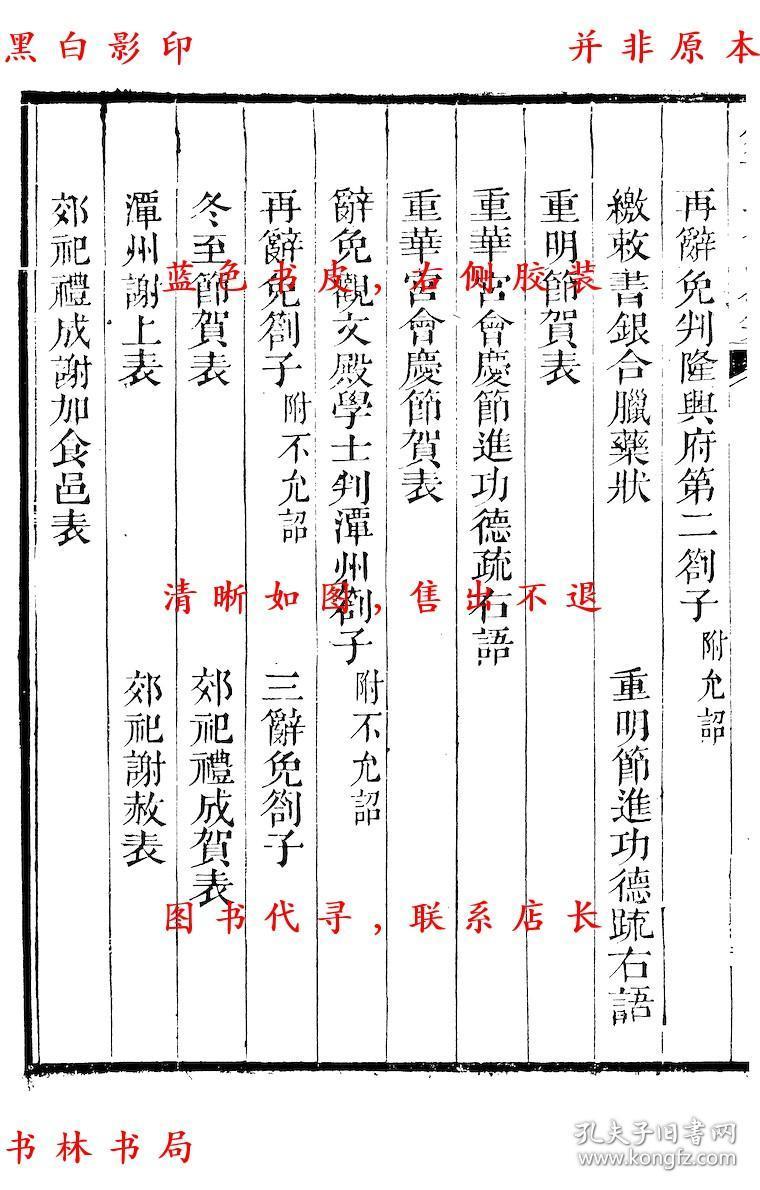 黑白影印
并非原本
再辭免判隆興府第二劄子 附允詔
繳敕書銀合臘藥狀 重明節進功德疏右語
重明節賀表
重華宮會慶節進功德疏右語
重華宮會慶節賀表
辭免觀文殿學士判潭州劄子 附不允詔
再辭免劄子 附不允詔 三辭免劄子
冬至節賀表 郊祀禮成賀表
潭州謝上表 郊祀謝赦表
郊祀禮成謝加食邑表
蓝色书皮,右侧胶装
清晰如图,售出不退
图书代寻,联系店长
书林书局
孔夫子旧书网
www.kongfz.com